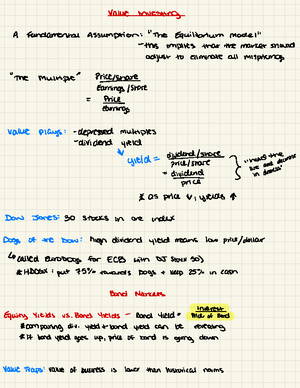 Value Investing
A Fundamental Assumption: "The Equilibrium model"
- this implies that the market should
adjust to eliminate all mispricings
"The Multiple" Price/share
Earnings/share
= Price
Earnings
Value Plays: - depressed multiples
- dividend yield
yield = dividend/share
price/share
= dividend
price
"indicates the
rise and decrease
in details"
* as price ↓, yields ↑
Dow Jones: 30 stocks in one index
Dogs of the Dow: high dividend yield means low price/dollar
↳ called Eurodogs for ECB (with DJ Stoxx 50)
* HBDDIX: put 75% towards Dogs + keep 25% in cash
Bond Markets
Equity Yields vs. Bond Yields - Bond yield = Interest
Price of Bond
* comparing div. yield + bond yield can be revealing
* if bond yield goes up, price of bond is going down
Value Traps: value of business is lower than historical norms